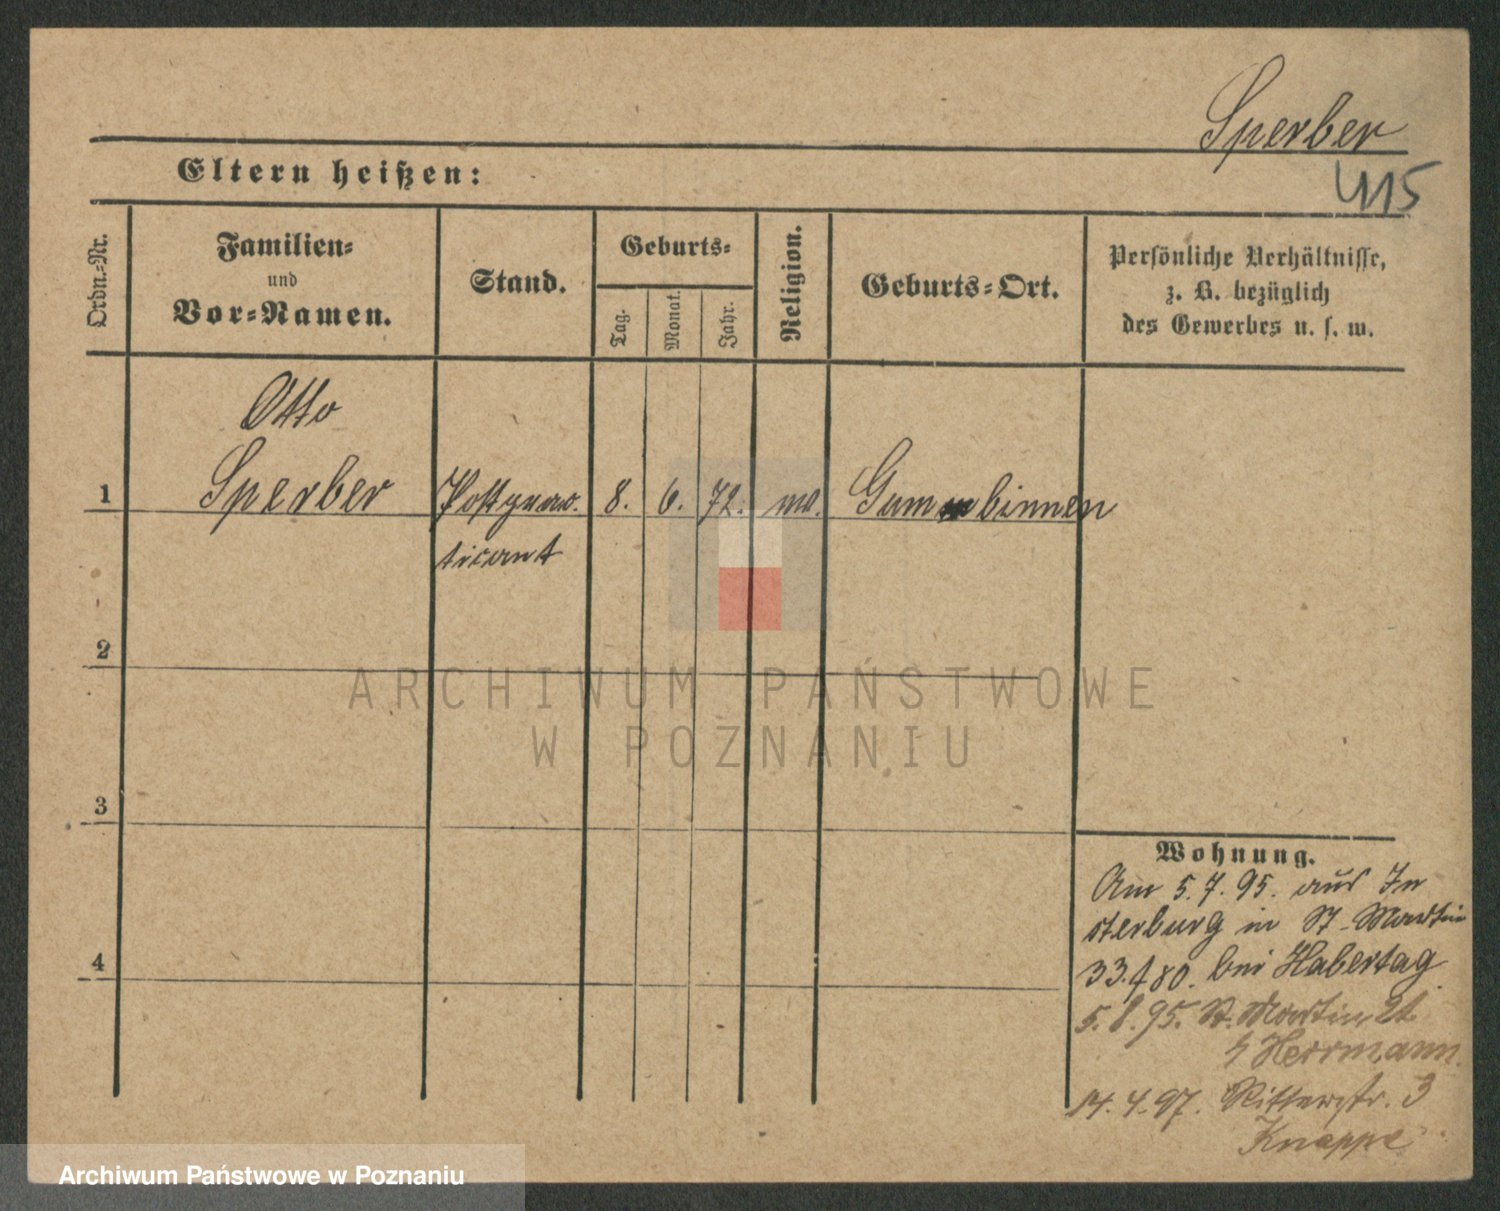 Sperber
415
Eltern heißen:
Ordn.=Nr.
Familien=
und
Vor=Namen.
Stand.
Geburts=
Tag.
Monat.
Jahr.
Religion.
Geburts=Ort.
Persönliche Verhältnisse,
z. B. bezüglich
des Gewerbes u. s. w.
Otto
1 Sperber Postprac. 8. 6. 72. Gumbinnen
ticant
2
ARCHIWUM PAŃSTWOWE
W POZNANIU
3
Wohnung.
Am 5.7.95. aus In
sterburg in St. Martin
33. bei Habertag
4
5.8.95. St. Martin
Herrmann
14.4.97. Ritterstr. 3
Knappe
Archiwum Państwowe w Poznaniu